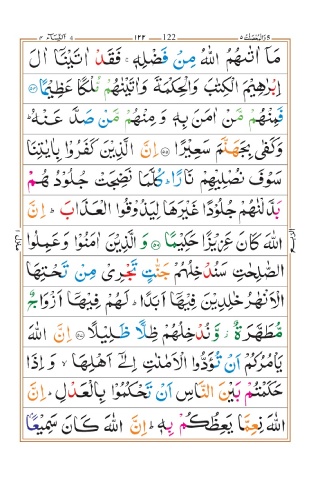 والمحصنت ٥ ١٢٢ 122 النسآء ٤
مَاۤ اٰتٰىهُمُ اللّٰهُ مِنْ فَضْلِهٖ ۚ فَقَدْ اٰتَيْنَاۤ اٰلَ
اِبْرٰهِيْمَ الْكِتٰبَ وَالْحِكْمَةَ وَاٰتَيْنٰهُمْ مُّلْكًا عَظِيْمًا ﴿۵۴﴾
فَمِنْهُمْ مَّنْ اٰمَنَ بِهٖ وَمِنْهُمْ مَّنْ صَدَّ عَنْهُ ؕ
وَكَفٰى بِجَهَنَّمَ سَعِيْرًا ﴿۵۵﴾ اِنَّ الَّذِيْنَ كَفَرُوْا بِاٰيٰتِنَا
سَوْفَ نُصْلِيْهِمْ نَارًا ؕ كُلَّمَا نَضِجَتْ جُلُوْدُهُمْ
بَدَّلْنٰهُمْ جُلُوْدًا غَيْرَهَا لِيَذُوْقُوا الْعَذَابَ ؕ اِنَّ
اللّٰهَ كَانَ عَزِيْزًا حَكِيْمًا ﴿۵۶﴾ وَالَّذِيْنَ اٰمَنُوْا وَعَمِلُوا
الصّٰلِحٰتِ سَنُدْخِلُهُمْ جَنّٰتٍ تَجْرِيْ مِنْ تَحْتِهَا
الْاَنْهٰرُ خٰلِدِيْنَ فِيْهَاۤ اَبَدًا ؕ لَهُمْ فِيْهَاۤ اَزْوَاجٌ
مُّطَهَّرَةٌ ۫ وَّنُدْخِلُهُمْ ظِلًّا ظَلِيْلًا ﴿۵۷﴾ اِنَّ اللّٰهَ
يَاْمُرُكُمْ اَنْ تُؤَدُّوا الْاَمٰنٰتِ اِلٰۤى اَهْلِهَا ۙ وَاِذَا
حَكَمْتُمْ بَيْنَ النَّاسِ اَنْ تَحْكُمُوْا بِالْعَدْلِ ؕ اِنَّ
اللّٰهَ نِعِمَّا يَعِظُكُمْ بِهٖ ؕ اِنَّ اللّٰهَ كَانَ سَمِيْعًۢا